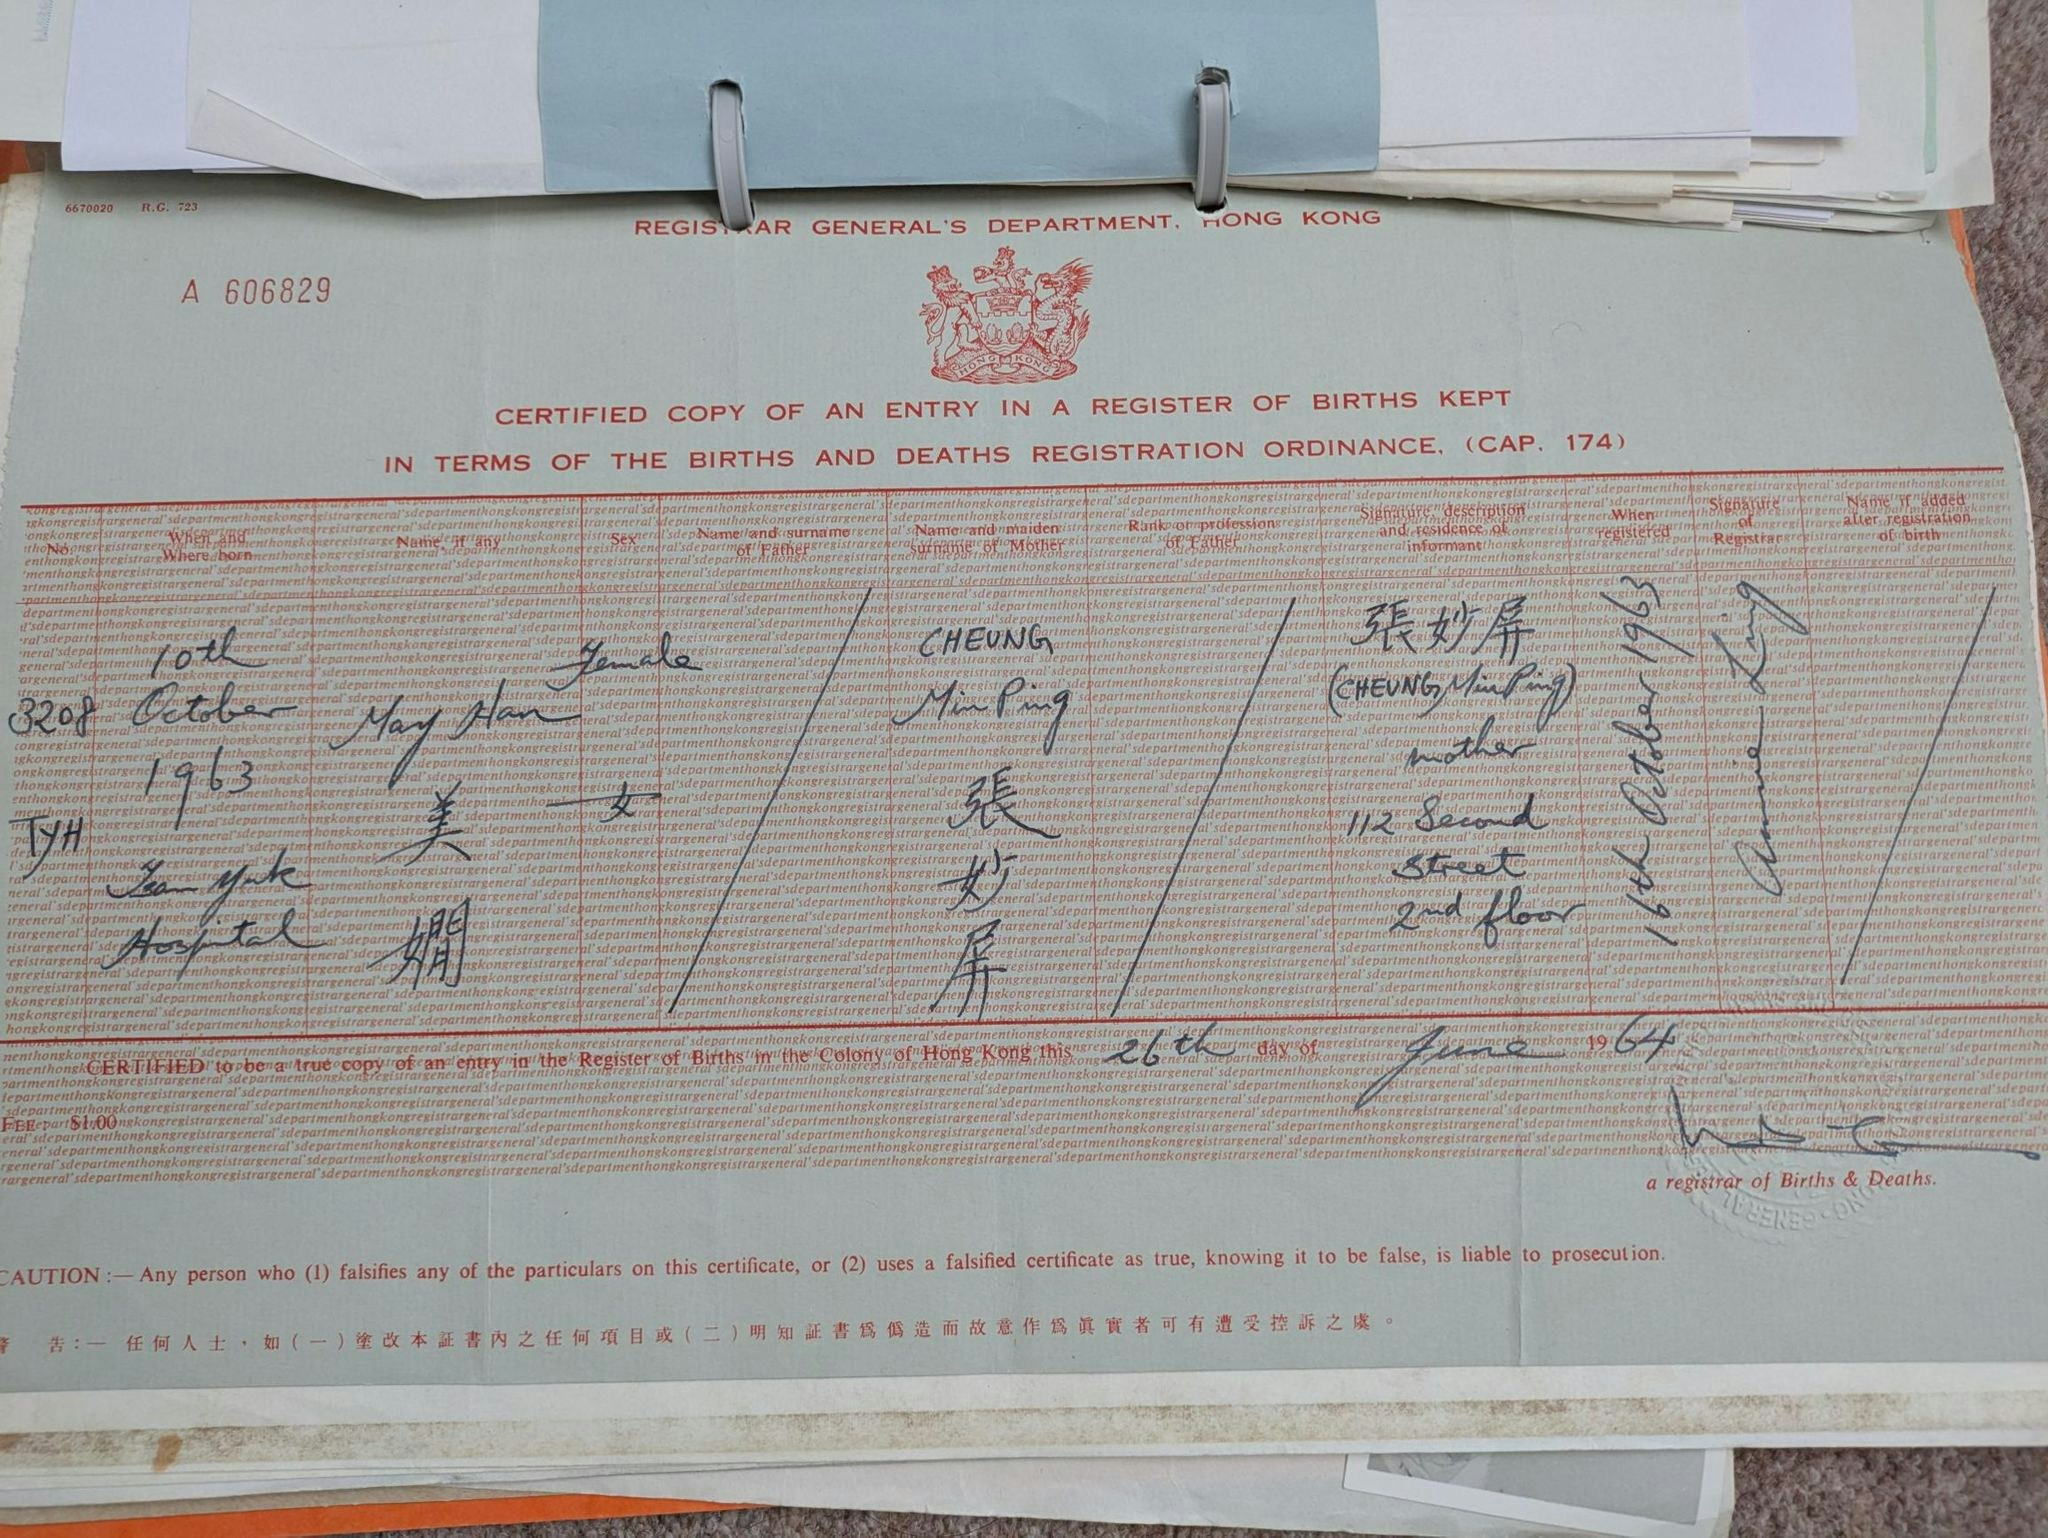 6670020 R.G. 723
REGISTRAR GENERAL'S DEPARTMENT, HONG KONG
A 606829
HONG KONG
CERTIFIED COPY OF AN ENTRY IN A REGISTER OF BIRTHS KEPT
IN TERMS OF THE BIRTHS AND DEATHS REGISTRATION ORDINANCE, (CAP. 174)
No.
When and
Where born
Name, if any
Sex
Name and surname
of Father
Name and maiden
surname of Mother
Rank or profession
of Father
Signature, description
and residence of
informant
When
registered
Signature
of
Registrar
Name if added
after registration
of birth
3208
TYH
10th
October
1963
Tsan Yuk
Hospital
May Han
美
嫻
Female
女
CHEUNG
Miu Ping
張
妙
屏
張妙屏
(CHEUNG, Miu Ping)
mother
112 Second
Street
2nd floor
16th October 1963
CERTIFIED to be a true copy of an entry in the Register of Births in the Colony of Hong Kong this 26th day of June 1964
FEE: $1.00
a registrar of Births & Deaths.
CAUTION :— Any person who (1) falsifies any of the particulars on this certificate, or (2) uses a falsified certificate as true, knowing it to be false, is liable to prosecution.
警 告：— 任何人士，如（一）塗改本証書內之任何項目或（二）明知証書爲僞造而故意作爲眞實者可有遭受控訴之處。